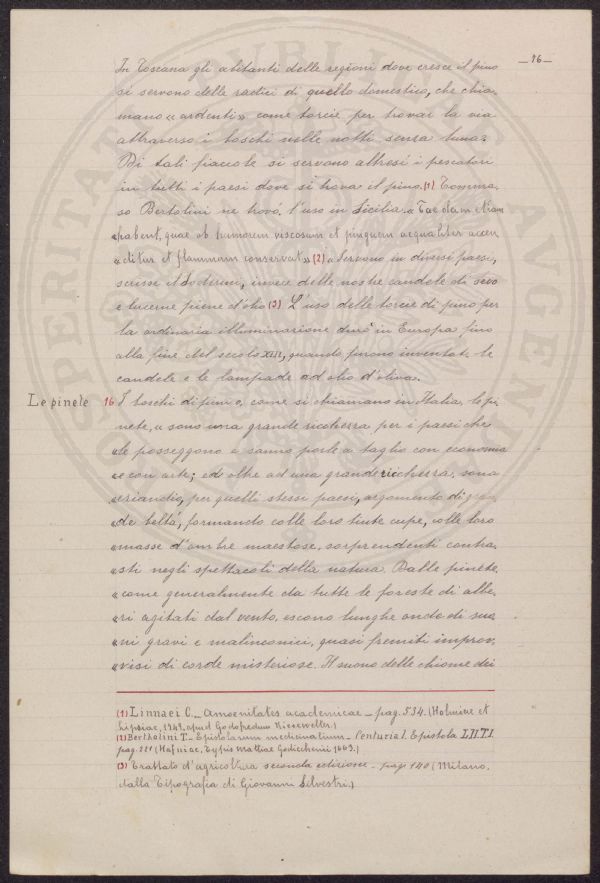 —16—
In Toscana gli abitanti delle regioni dove cresce il pino
si servono delle radici di quello domestico, che chia-
mano «ardenti» come torcie per trovar la via
attraverso i boschi nelle notti senza luna.
Di tali fiaccole si servono altresì i pescatori
in tutti i paesi dove si trova il pino.(1) Tomma-
so Bertolini ne trovò l'uso in Sicilia. «Taedam etiam
«habent, quae ob humorem viscosum et pinguem aequaliter accen-
«ditur et flammam conservat» (2) «Servono in diversi paesi,
scrisse il Soderini, invece delle nostre candele di sevo
e lucerne piene d'olio (3) L'uso delle torcie di pino per
la ordinaria illuminazione durò in Europa fino
alla fine del secolo XIII, quando furono inventate le
candele e le lampade ad olio d'oliva.
Le pinete 16 I boschi di pino, come si chiamano in Italia, le pi-
nete, «sono una grande ricchezza per i paesi che
«le posseggono e sanno porle a taglio con economia
«e con arte; ed oltre ad una grande ricchezza, sono
«eziandio, per quelli stessi paesi, argomento di gran-
«de beltà, formando colle loro tinte cupe, colle loro
«masse d'ombre maestose, sorprendenti contra-
«sti negli spettacoli della natura. Dalle pinete,
«come generalmente da tutte le foreste di albe-
«ri agitati dal vento, escono lunghe onde di suo-
«ni gravi e malinconici, quasi fremiti improv-
«visi di corde misteriose. Il suono delle chiome dei
(1) Linnaei C. — Amoenitates academicae — pag. 534. (Holmiae et
Lipsiae, 1749, apud Godofredum Kiesewetter.)
(2) Bertholini T. — Epistolarum medicinalium — Centuria I. Epistola LII. T.I.
pag. 221 (Hafniae, Typis Mathiae Godicchenii 1663.)
(3) Trattato d'agricoltura seconda edizione — pag. 140 (Milano,
dalla Tipografia di Giovanni Silvestri.)